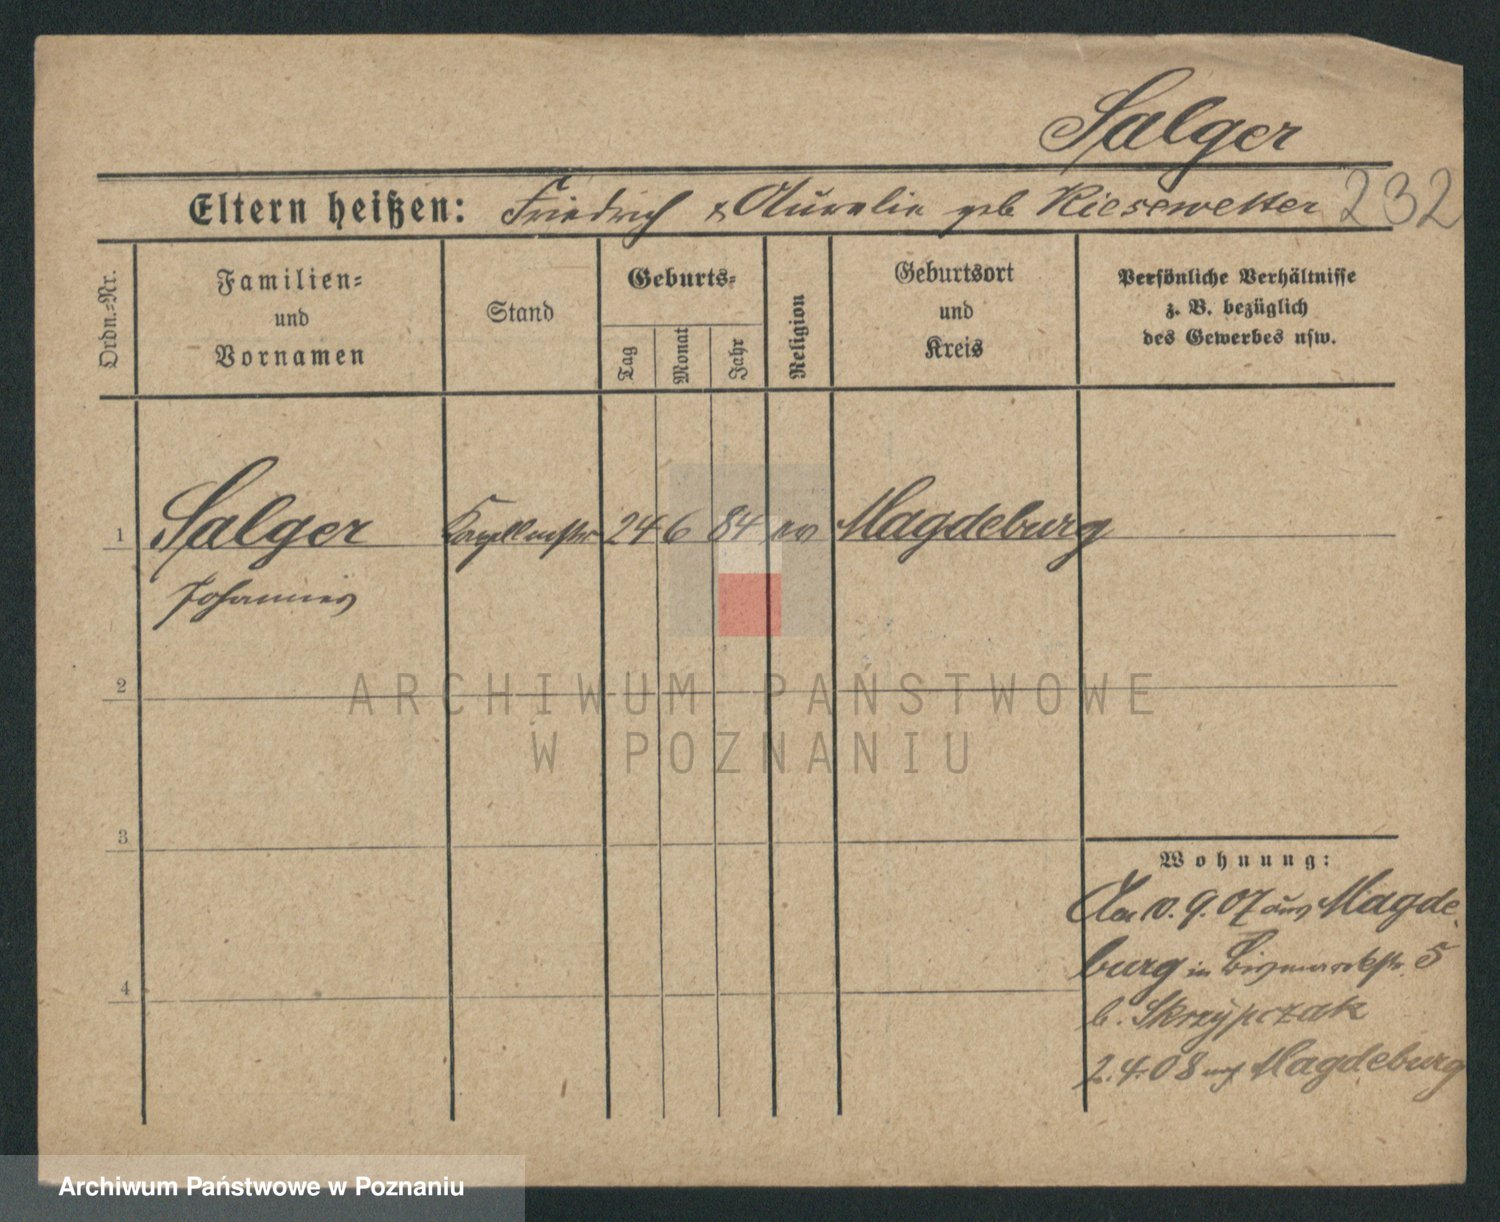 Salger
Eltern heißen: Friedrich & Aurelie geb Kiesewetter 232
Ordn.=Nr.
Familien=
und
Vornamen
Stand
Geburts=
Tag
Monat
Jahr
Religion
Geburtsort
und
Kreis
Persönliche Verhältnisse
z. B. bezüglich
des Gewerbes usw.
1 Salger Kapellmstr 24 6 84 ev Magdeburg
Johannes
2
ARCHIWUM PAŃSTWOWE
W POZNANIU
3
Wohnung:
9.07 aus Magde
burg in Bismarckstr. 5
4
b. Skrzypczak
2.4.08 nach Magdeburg
Archiwum Państwowe w Poznaniu